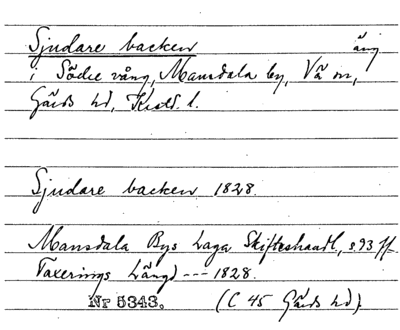 Sjudare backen äng
i Södre vång, Mansdala by, Vä sn,
Gärds hd, Krist. l.
Sjudare backen 1828.
Mansdala Bys Laga Skifteshandl., s. 93 ff.
Taxerings Längd --- 1828.
Nr 5343. (C 45 Gärds hd).